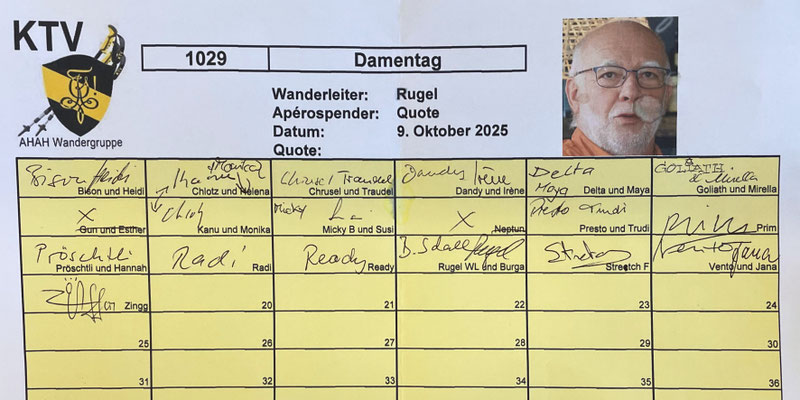 KTV
AHAH Wandergruppe
1029 Damentag
Wanderleiter: Rugel
Apérospender: Quote
Datum: 9. Oktober 2025
Quote:
Bison Heidi Chrusel Traudel Dandy Irène Delta Maya GOLIATH & Mirella
Bison und Heidi Chlotz und Helena Chrusel und Traudel Dandy und Irène Delta und Maya Goliath und Mirella
X Micky X Presto Trudi Prim
Gun und Esther Kanu und Monika Micky B und Susi Neptun Presto und Trudi Prim
Pröschtli Radi Ready Stretch Vento Jana
Pröschtli und Hannah Radi Ready Rugel WL und Burga Streetch F Vento und Jana
Zingg 20 21 22 23 24
25 26 27 28 29 30
31 32 33 34 35 36